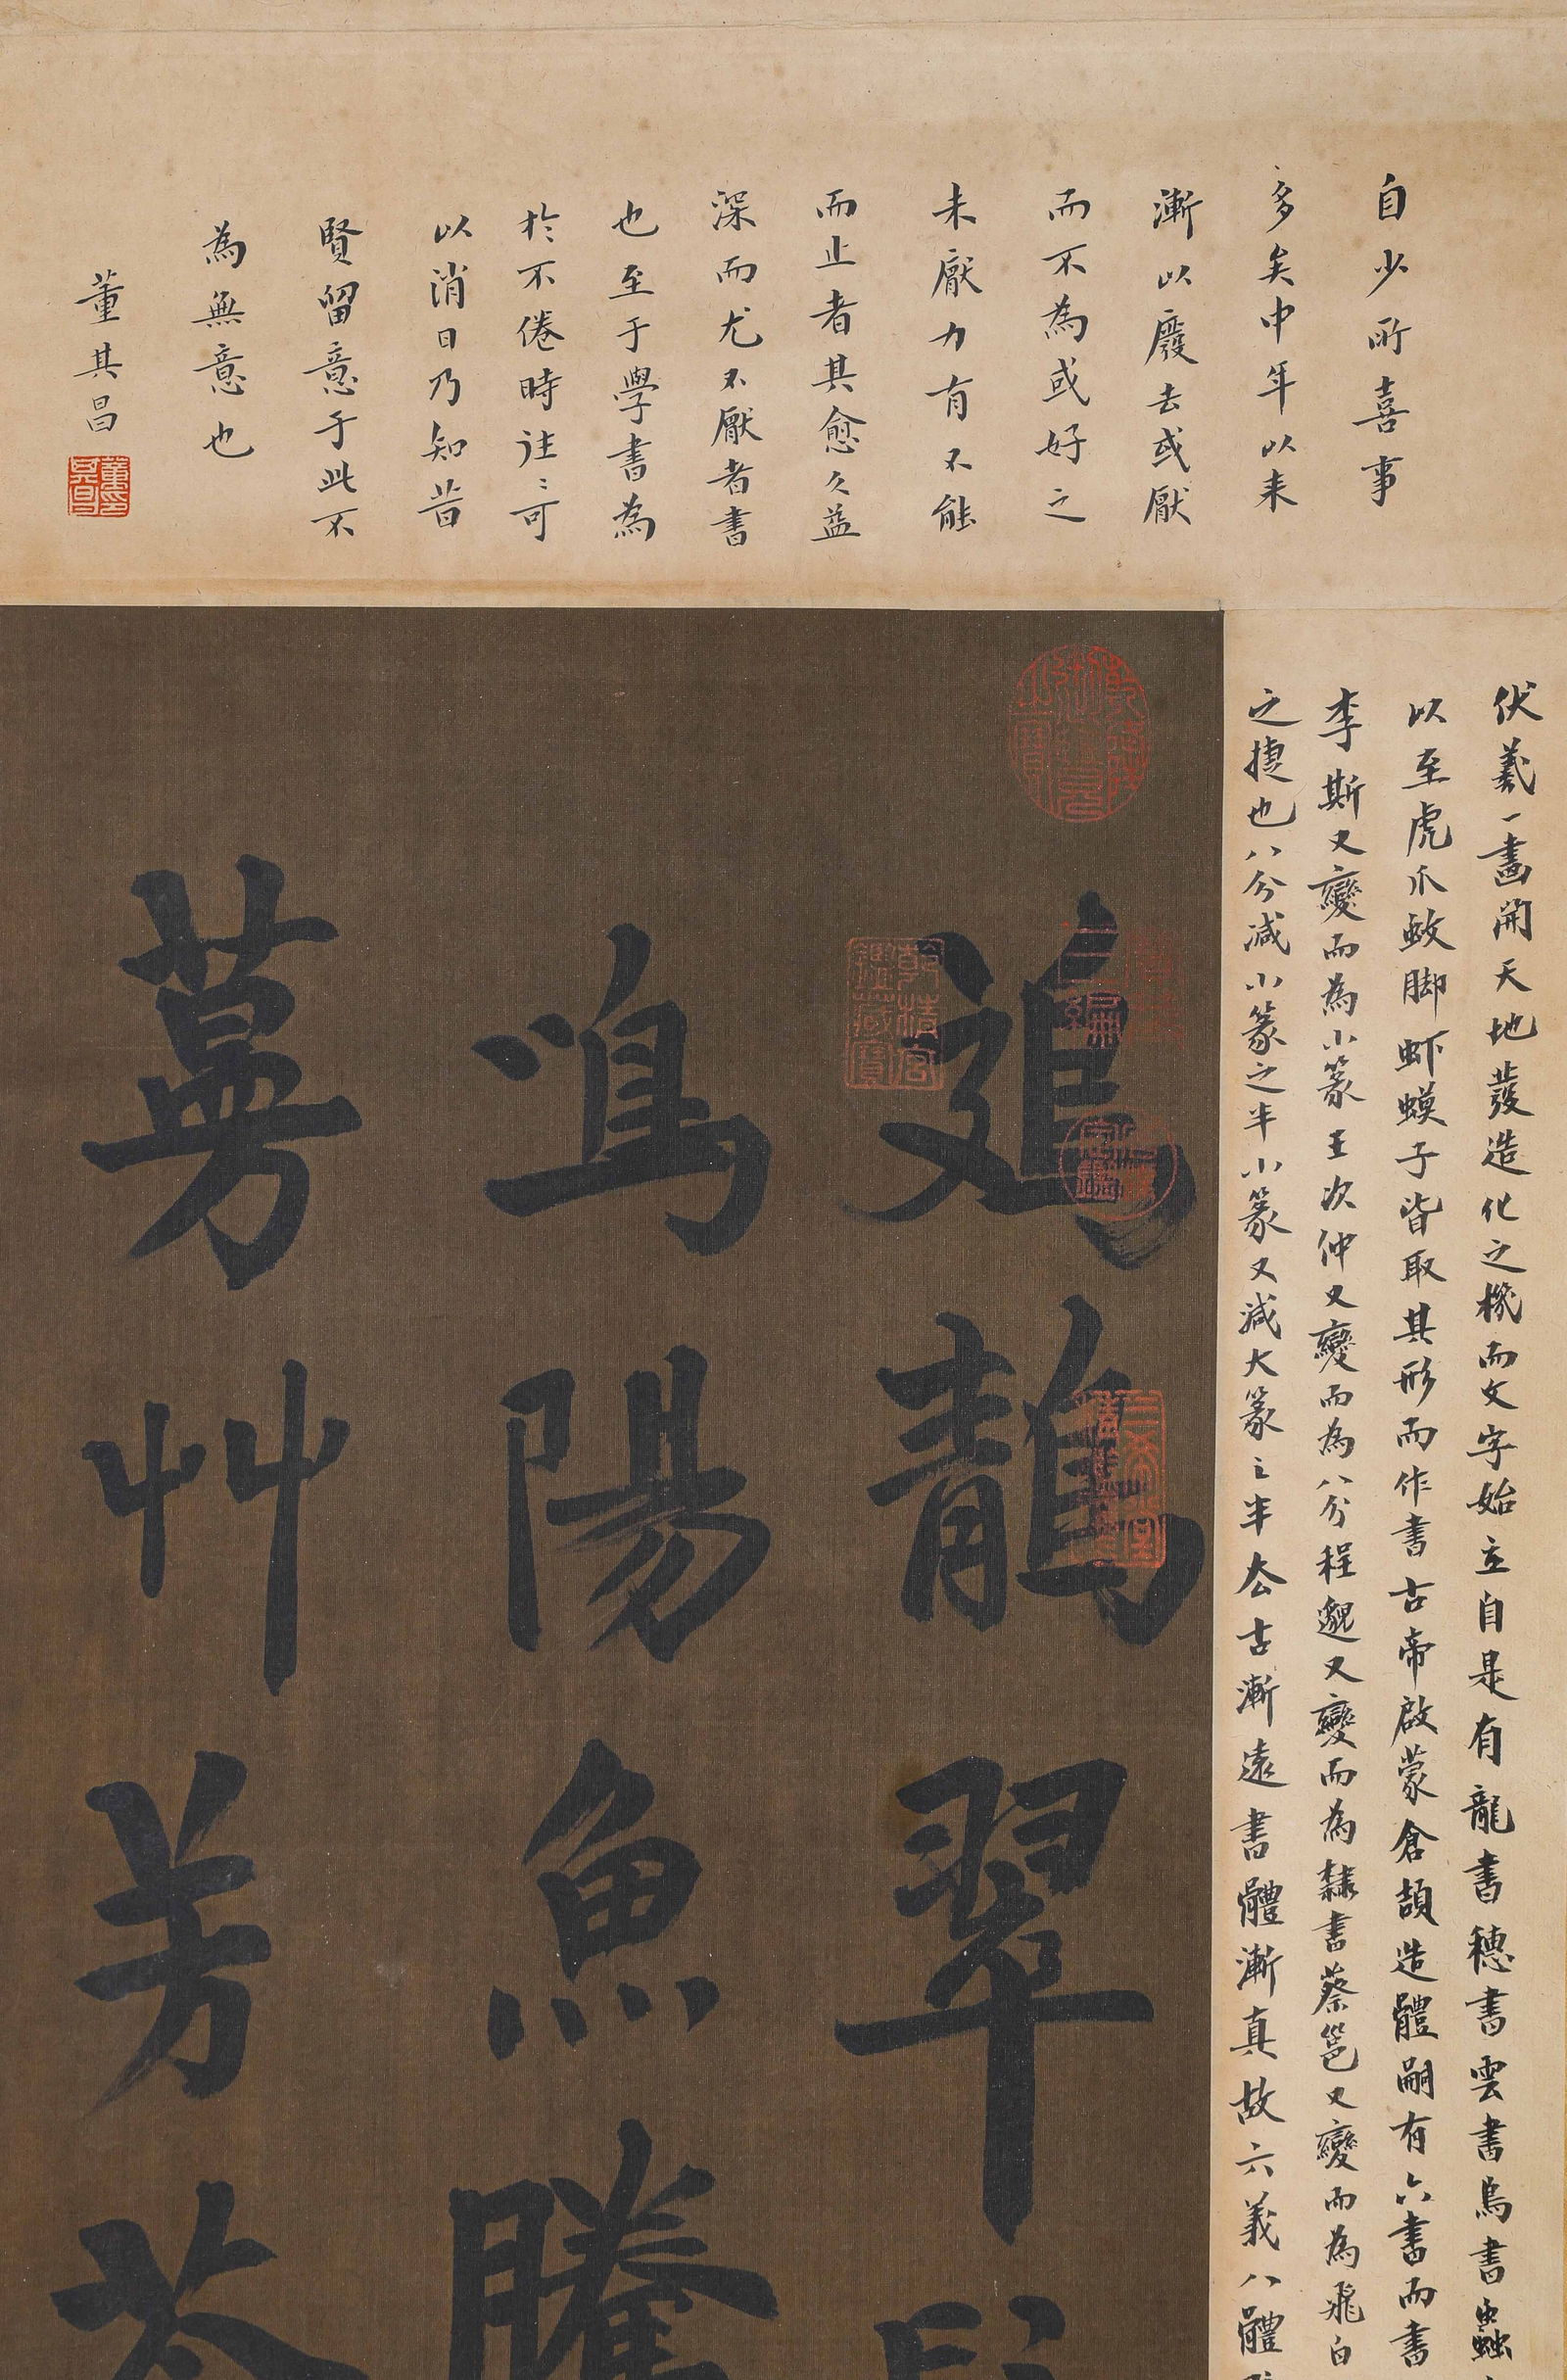 自少所喜事
多矣中年以来
漸以廢去或厭
而不為或好之
未厭力有不能
而止者其愈久益
深而尤不厭者書
也至于學書為
於不倦時往〻可
以消日乃知昔
賢留意于此不
為無意也
董其昌
伏羲一畫開天地發造化之機而文字始立自是有龍書穗書雲書鳥書蟲
以至虎爪蚊脚蚶蟆子皆取其形而作書古帝啟蒙倉頡造體嗣有六書而書
李斯又變而為小篆王次仲又變而為八分程邈又變而為隸書蔡邕又變而為飛白
之捷也八分減小篆之半小篆又減大篆之半去古漸遠書體漸真故六義八體
鵁鶄翠
鳴陽魚騰
蒭艸芳苓
乾隆御覽之寶
乾清宮鑑藏寶
三希堂